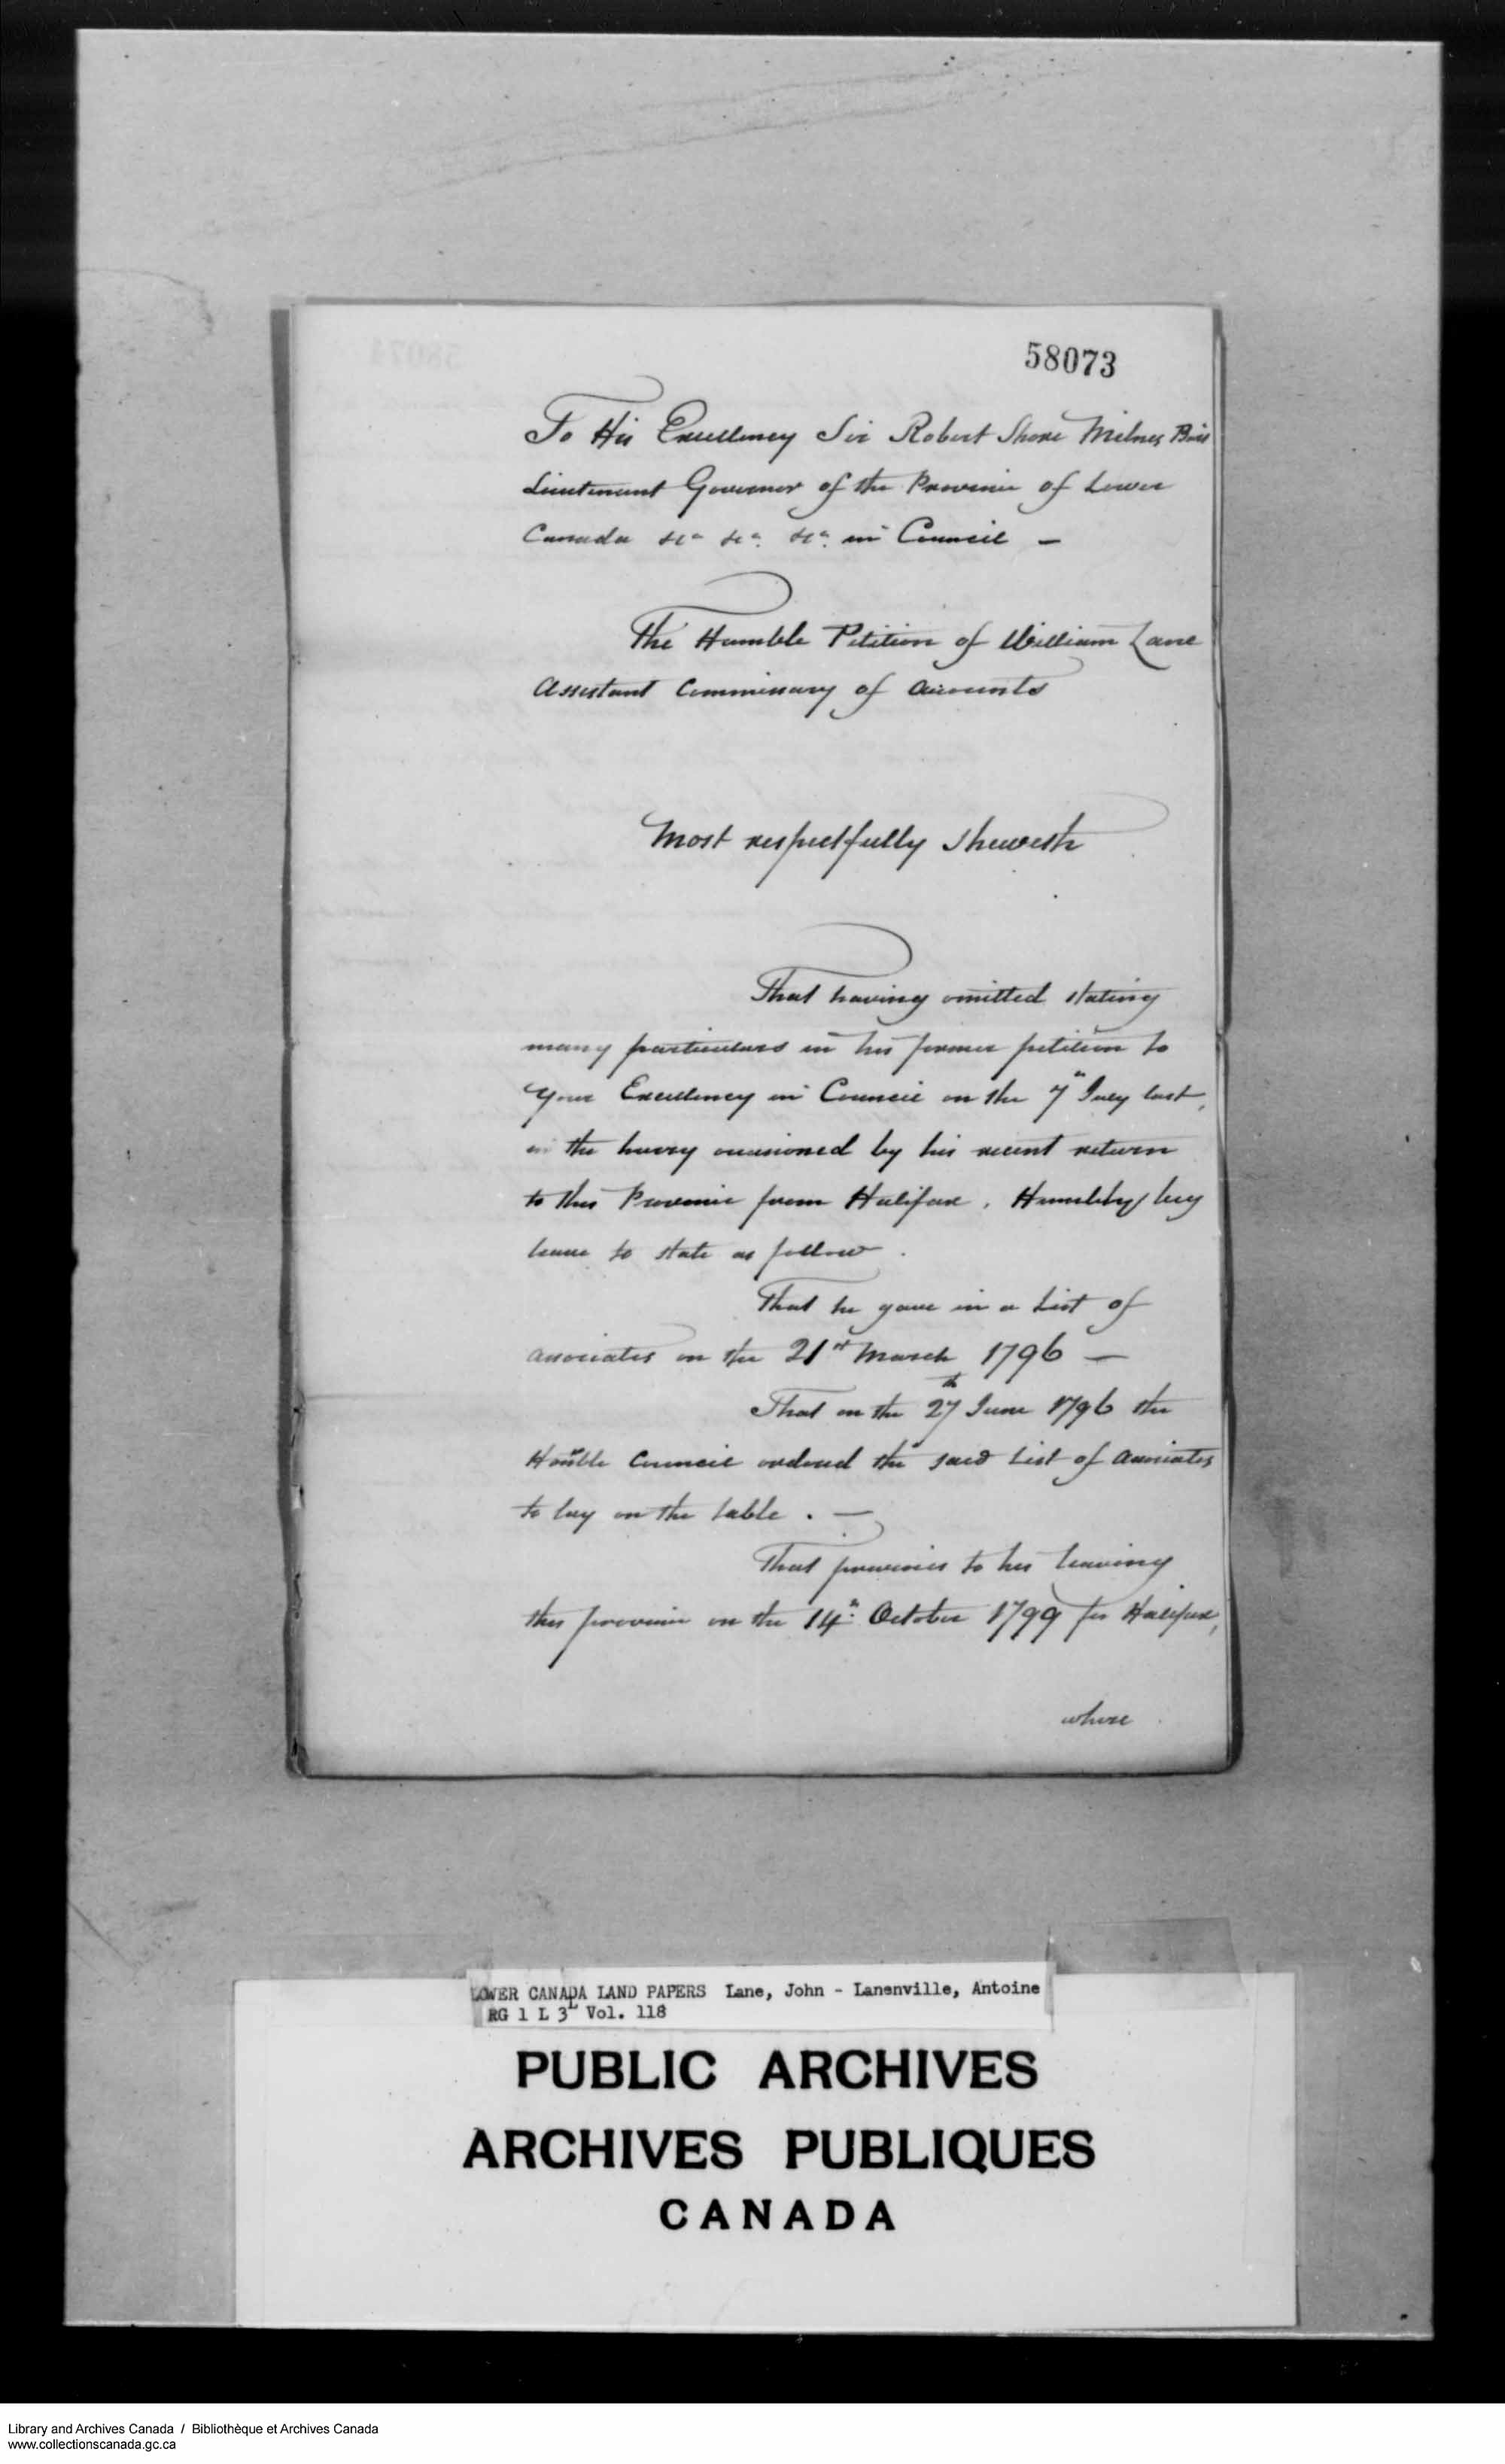 58073
To His Excellency Sir Robert Shore Milnes Bart
Lieutenant Governor of the Province of Lower
Canada &ca &ca. &ca. in Council —
The Humble Petition of William Lane
Assistant Commissary of Accounts
Most respectfully Sheweth
That having omitted stating
many particulars in his former petition to
Your Excellency in Council on the 7th July last,
in the hurry occasioned by his recent return
to this Province from Halifax, Humbly beg
leave to state as follow.
That he gave in a List of
associates on the 21st March 1796 —
That on the 27th June 1796 the
Honble Council ordered the said List of Associates
to lay on the table. —
That previous to his leaving
this province on the 14th October 1799 for Halifax,
where
LOWER CANADA LAND PAPERS Lane, John - Lanenville, Antoine
RG 1 L 3L Vol. 118
PUBLIC ARCHIVES
ARCHIVES PUBLIQUES
CANADA
Library and Archives Canada / Bibliothèque et Archives Canada
www.collectionscanada.gc.ca